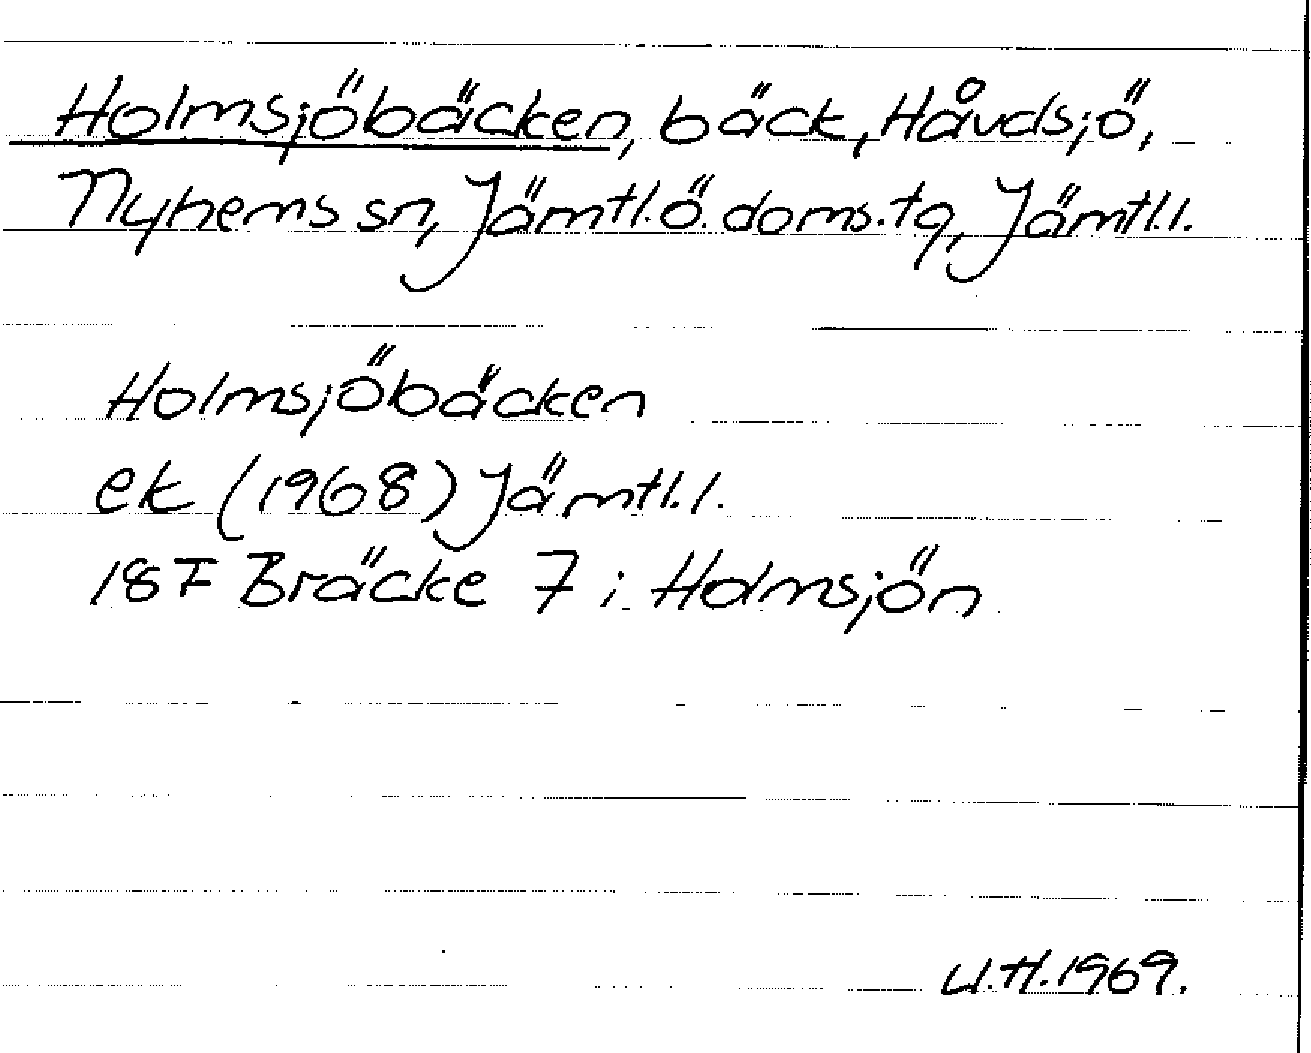 Holmsjöbäcken, bäck, Håvdsjö,
Nyhems sn, Jämtl.ö. doms.tg, Jämtl.l.
Holmsjöbäcken
ek (1968) Jämtl.l.
18F Bräcke 7 i Holmsjön
U.H.1969.